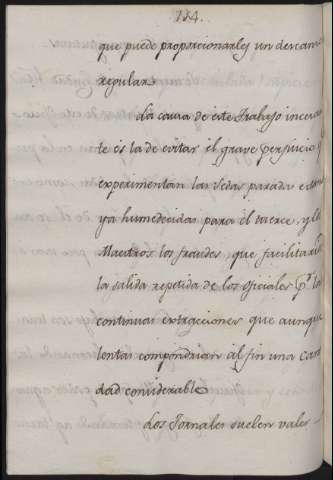 134.
que puede proporcionarles un descan
regular.
La causa de este trabajo incesan
te es la de evitar el grave perjuicio q
experimentan las sedas paradas
ya humedecidas para el tuerce, y a
Maestros los fraudes que facilitaria
la salida repetida de los oficiales p.r la
continuas extracciones que aunque
lentas compondrian al fin una canti
dad considerable.
Los Jornales suelen valer